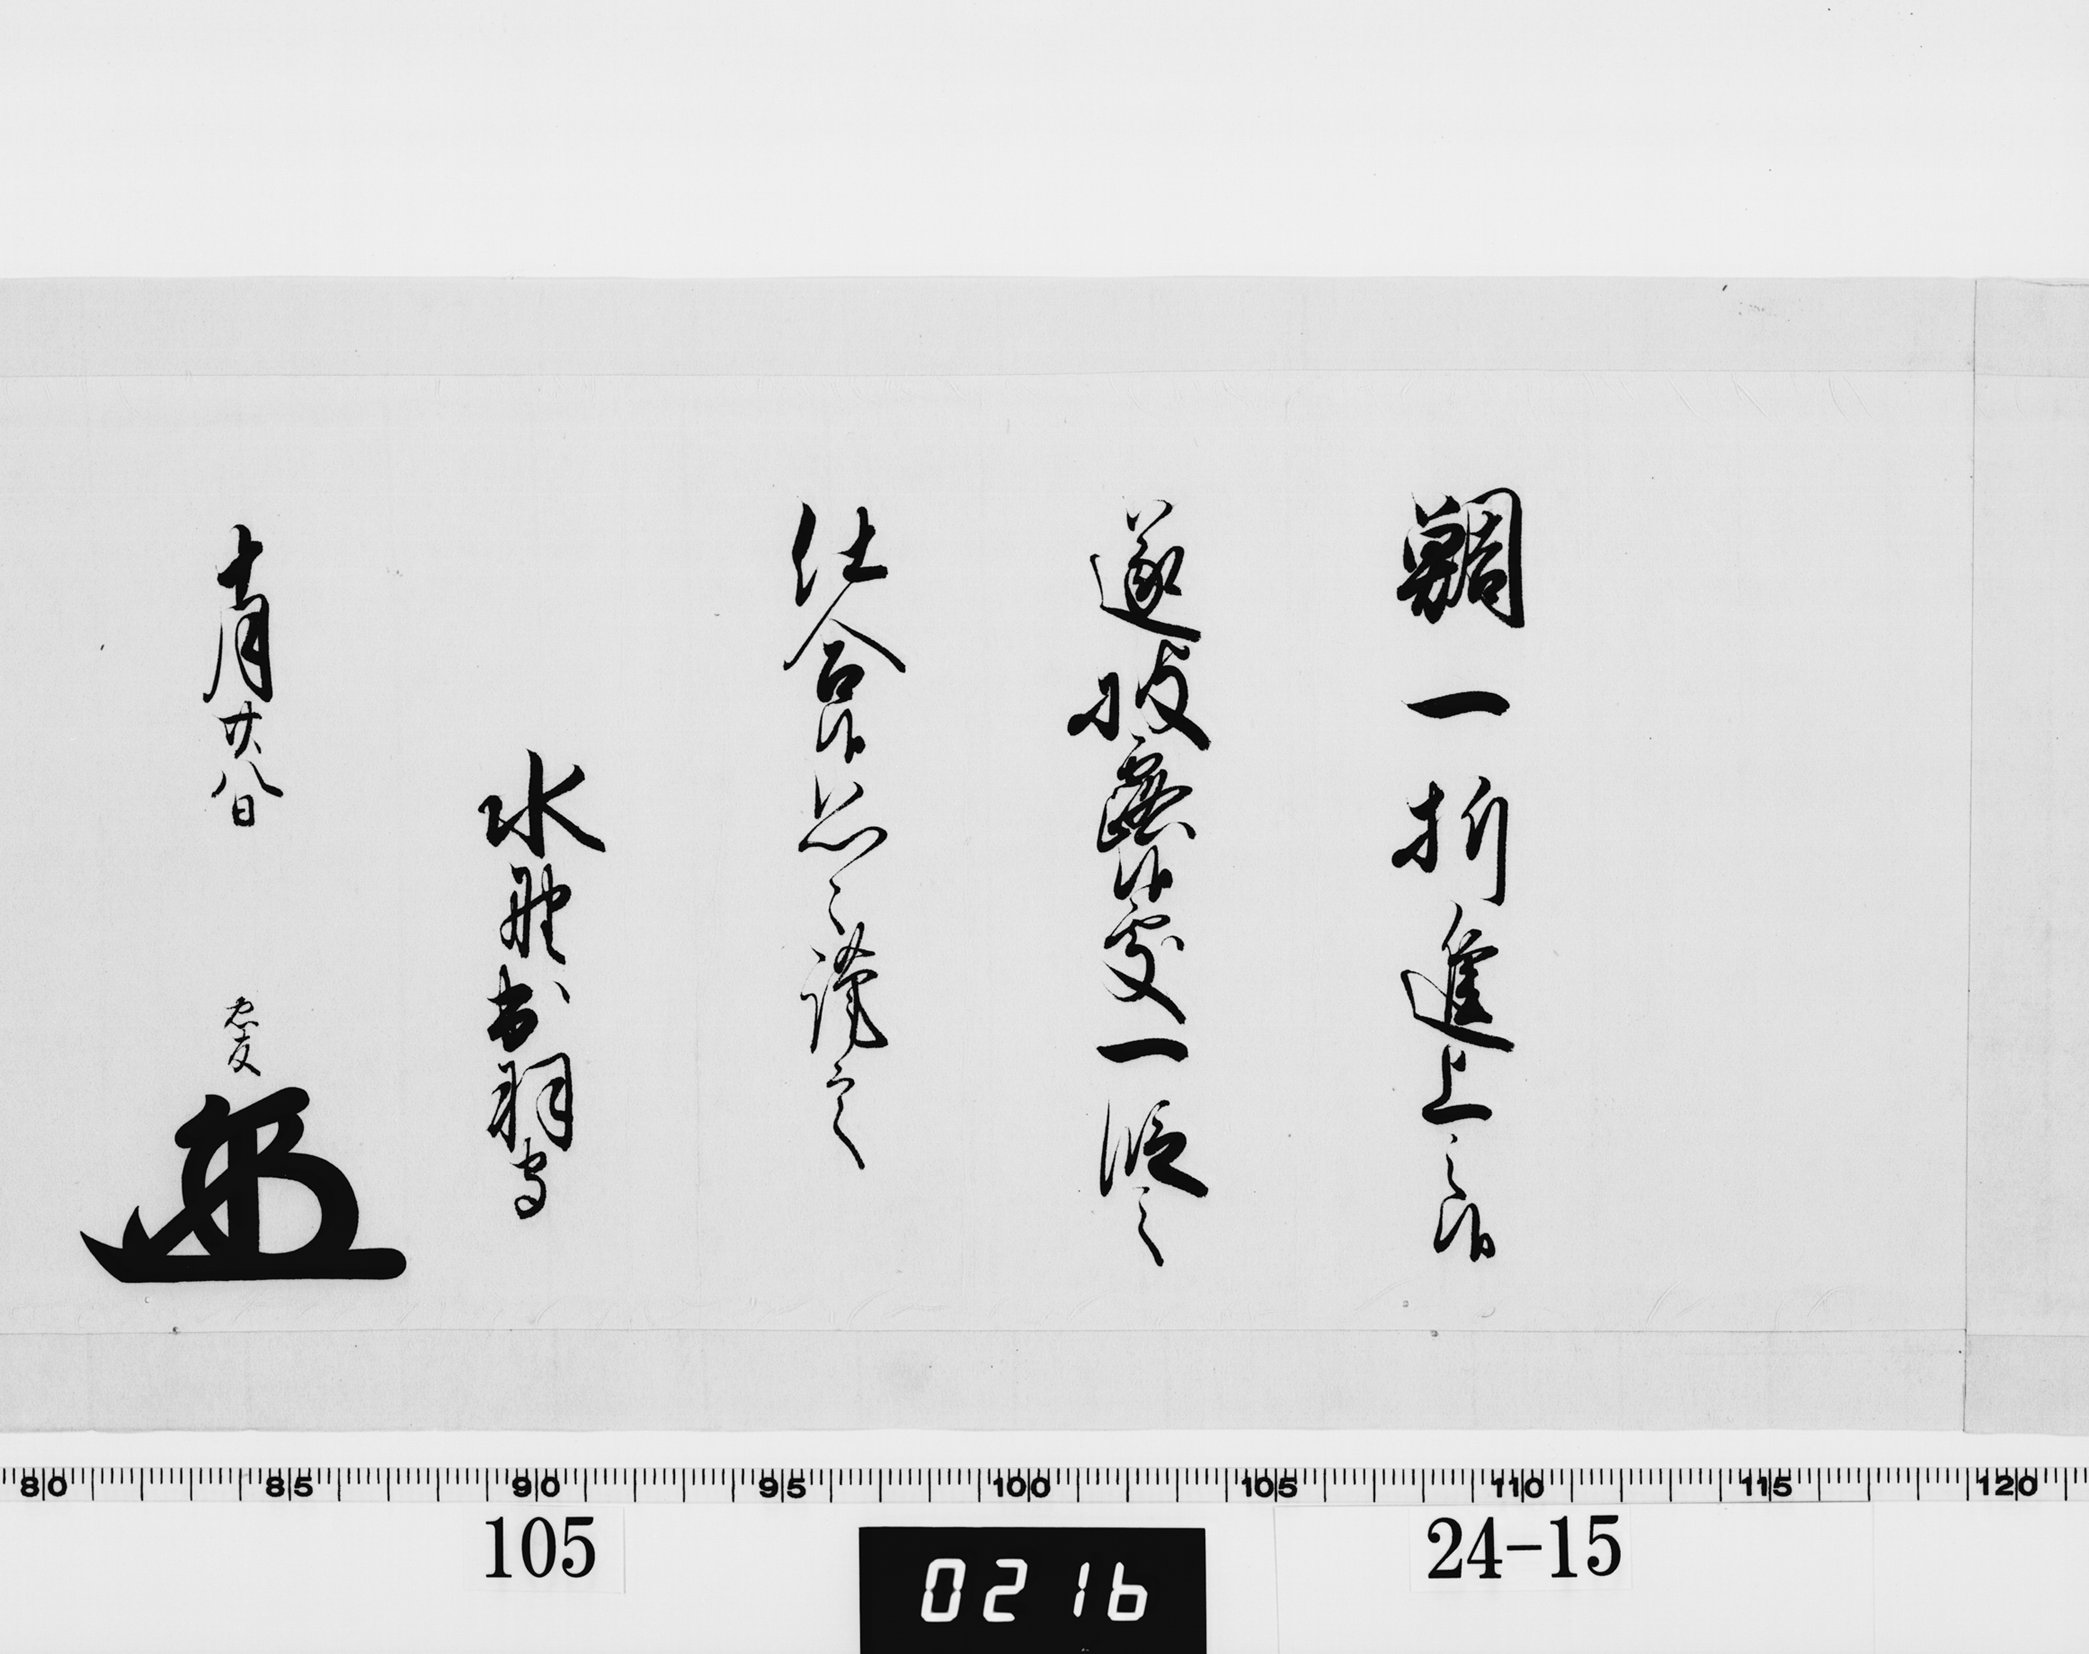 鯛一折進上之候
遂披露候處一段之
仕合候恐々謹言
水野出羽守
十月廿八日 忠友
80 85 90 95 100 105 110 115 120
105
0216
24-15